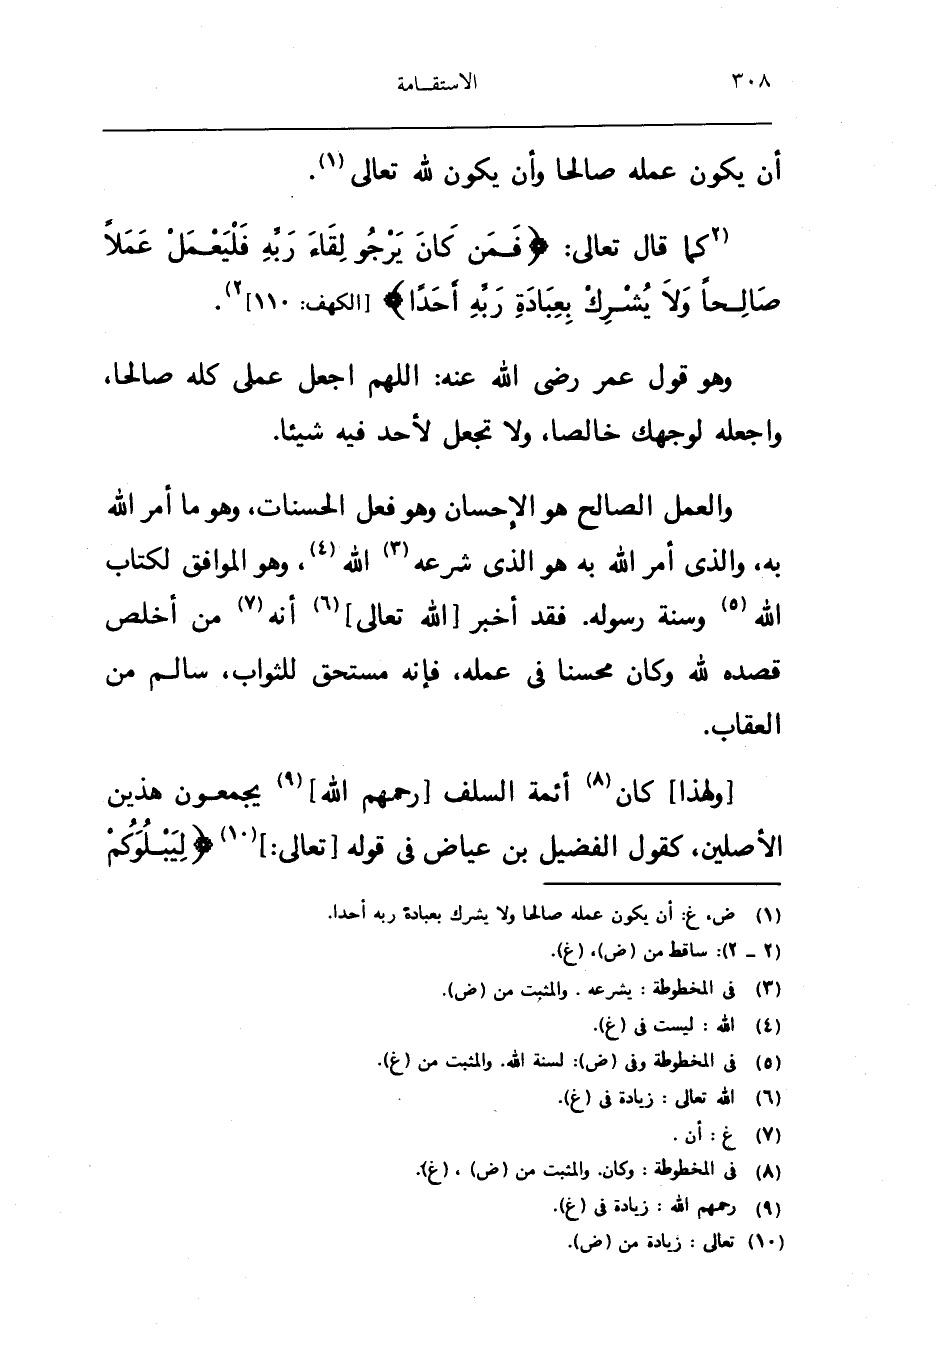 ٣٠٨ الاستقـامة
أن يكون عمله صالحا وأن يكون لله تعالى (١).
(٢كما قال تعالى: ﴿فَـمَن كَانَ يَرْجُو لِقَاءَ رَبِّهِ فَلْيَعْـمَلْ عَمَلاً
صَالِـحاً وَلاَ يُشْـرِكْ بِعِبَادَةِ رَبِّهِ أَحَدًا﴾ [الكهف: ١١٠]٢).
وهو قول عمر رضى الله عنه: اللهم اجعل عملى كله صالحا،
واجعله لوجهك خالصا، ولا تجعل لأحد فيه شيئا.
والعمل الصالح هو الإحسان وهو فعل الحسنات، وهو ما أمر الله
به، والذى أمر الله به هو الذى شرعه (٣) الله (٤)، وهو الموافق لكتاب
الله (٥) وسنة رسوله. فقد أخبر [الله تعالى] (٦) أنه (٧) من أخلص
قصده لله وكان محسنا فى عمله، فإنه مستحق للثواب، سالـم من
العقاب.
[ولهذا] كان (٨) أئمة السلف [رحمهم الله] (٩) يجمعـون هذين
الأصلين، كقول الفضيل بن عياض فى قوله [تعالى:] (١٠) ﴿لِيَبْـلُوَكُمْ
(١) ض، غ: أن يكون عمله صالحا ولا يشرك بعبادة ربه أحدا.
(٢ ـ ٢): ساقط من (ض)، (غ).
(٣) فى المخطوطة : يشرعه . والمثبت من (ض).
(٤) الله : ليست فى (غ).
(٥) فى المخطوطة وفى (ض): لسنة الله. والمثبت من (غ).
(٦) الله تعالى : زيادة فى (غ).
(٧) غ : أن .
(٨) فى المخطوطة : وكان. والمثبت من (ض) ، (غ).
(٩) رحمهم الله : زيادة فى (غ).
(١٠) تعالى : زيادة من (ض).